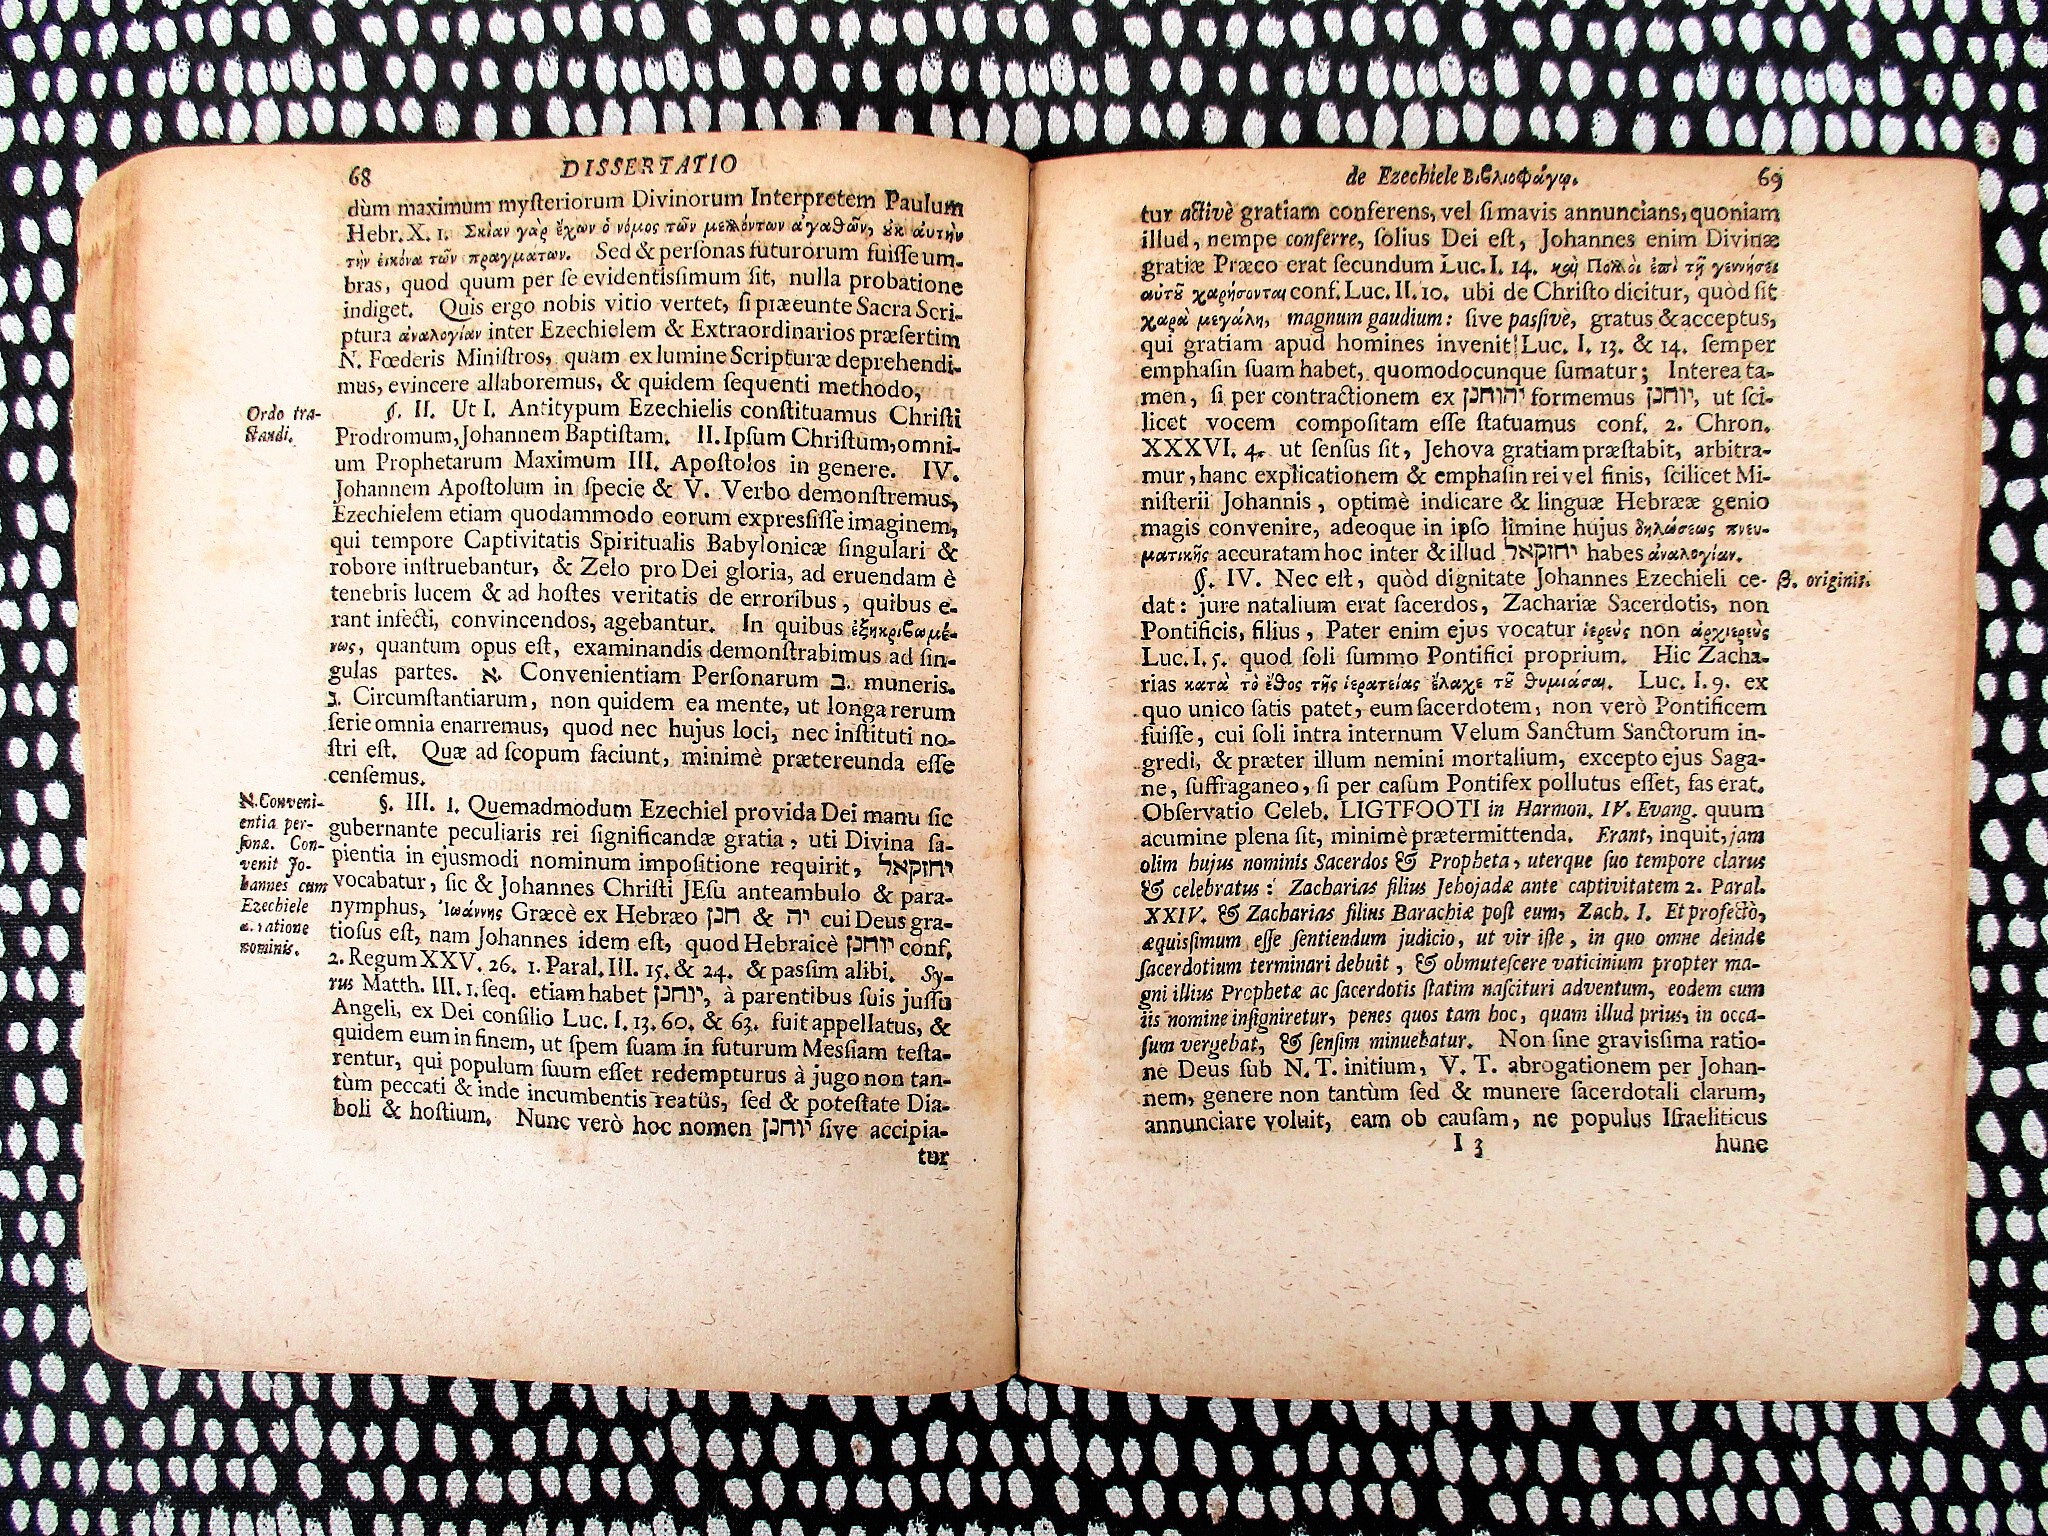 68 DISSERTATIO
dùm maximum myſteriorum Divinorum Interpretem Paulum
Hebr. X. 1. Σκιὰν γὰρ ἔχων ὁ νόμος τῶν μελλόντων ἀγαθῶν, ȣκ ἀυτὴν
τὴν ἐικόνα τῶν πραγματων. Sed & perſonas futurorum fuiſſe um-
bras, quod quum per ſe evidentisſimum ſit, nulla probatione
indiget. Quis ergo nobis vitio vertet, ſi præeunte Sacra Scri-
ptura ἀναλογίαν inter Ezechielem & Extraordinarios præſertim
N. Fœderis Miniſtros, quam ex lumine Scripturæ deprehendi-
mus, evincere allaboremus, & quidem ſequenti methodo,
Ordo tra-
ctandi.
§. II. Ut I. Antitypum Ezechielis conſtituamus Chriſti
Prodromum, Johannem Baptiſtam. II. Ipſum Chriſtum, omni-
um Prophetarum Maximum III. Apoſtolos in genere. IV.
Johannem Apoſtolum in ſpecie & V. Verbo demonſtremus,
Ezechielem etiam quodammodo eorum expresſiſſe imaginem,
qui tempore Captivitatis Spiritualis Babylonicæ ſingulari &
robore inſtruebantur, & Zelo pro Dei gloria, ad eruendam è
tenebris lucem & ad hoſtes veritatis de erroribus, quibus e-
rant infecti, convincendos, agebantur. In quibus ἐξηκριβωμέ-
νως, quantum opus eſt, examinandis demonſtrabimus ad ſin-
gulas partes. א. Convenientiam Perſonarum ב. muneris.
ג. Circumſtantiarum, non quidem ea mente, ut longa rerum
ſerie omnia enarremus, quod nec hujus loci, nec inſtituti no-
ſtri eſt. Quæ ad ſcopum faciunt, minimè prætereunda eſſe
cenſemus.
א. Conveni-
entia per-
ſonæ. Con-
venit Jo-
hannes cum
Ezechiele
α. ratione
nominis.
§. III. 1. Quemadmodum Ezechiel provida Dei manu ſic
gubernante peculiaris rei ſignificandæ gratia, uti Divina ſa-
pientia in ejusmodi nominum impoſitione requirit, יחזקאל
vocabatur, ſic & Johannes Chriſti JEſu anteambulo & para-
nymphus, Ἰωάννης Græcè ex Hebræo חנן & יה cui Deus gra-
tioſus eſt, nam Johannes idem eſt, quod Hebraicè יוחנן conf.
2. Regum XXV. 26. 1. Paral. III. 15. & 24. & pasſim alibi. Sy-
rus Matth. III. 1. ſeq. etiam habet יוחנן, à parentibus ſuis juſſu
Angeli, ex Dei conſilio Luc. I. 13. 60. & 63. fuit appellatus, &
quidem eum in finem, ut ſpem ſuam in futurum Mesſiam teſta-
rentur, qui populum ſuum eſſet redempturus à jugo non tan-
tùm peccati & inde incumbentis reatüs, ſed & poteſtate Dia-
boli & hoſtium. Nunc verò hoc nomen יוחנן ſive accipia-
tur
de Ezechiele Βιβλιοφάγῳ. 69
tur activè gratiam conferens, vel ſi mavis annuncians, quoniam
illud, nempe conferre, ſolius Dei eſt, Johannes enim Divinæ
gratiæ Præco erat ſecundum Luc. I. 14. καὶ Πολλοὶ ἐπὶ τῇ γεννήσει
αὐτȣ͂ χαρήσονται conf. Luc. II. 10. ubi de Chriſto dicitur, quòd ſit
χαρὰ μεγάλη, magnum gaudium: ſive pasſivè, gratus & acceptus,
qui gratiam apud homines invenit Luc. I. 13. & 14. ſemper
emphaſin ſuam habet, quomodocunque ſumatur; Interea ta-
men, ſi per contractionem ex יהוחנן formemus יוחנן, ut ſci-
licet vocem compoſitam eſſe ſtatuamus conf. 2. Chron.
XXXVI. 4. ut ſenſus ſit, Jehova gratiam præſtabit, arbitra-
mur, hanc explicationem & emphaſin rei vel finis, ſcilicet Mi-
niſterii Johannis, optimè indicare & linguæ Hebrææ genio
magis convenire, adeoque in ipſo limine hujus δηλώσεως πνευ-
ματικῆς accuratam hoc inter & illud יחזקאל habes ἀναλογίαν.
§. IV. Nec eſt, quòd dignitate Johannes Ezechieli ce-
β. originis.
dat: jure natalium erat ſacerdos, Zachariæ Sacerdotis, non
Pontificis, filius, Pater enim ejus vocatur ἱερεύς non ἀρχιερεύς
Luc. I. 5. quod ſoli ſummo Pontifici proprium. Hic Zacha-
rias κατὰ τὸ ἔθος τῆς ἱερατείας ἔλαχε τȣ͂ θυμιάσαι. Luc. I. 9. ex
quo unico ſatis patet, eum ſacerdotem, non verò Pontificem
fuiſſe, cui ſoli intra internum Velum Sanctum Sanctorum in-
gredi, & præter illum nemini mortalium, excepto ejus Saga-
ne, ſuffraganeo, ſi per caſum Pontifex pollutus eſſet, fas erat.
Obſervatio Celeb. LIGTFOOTI in Harmon. IV. Evang. quum
acumine plena ſit, minimè prætermittenda. Erant, inquit, jam
olim hujus nominis Sacerdos & Propheta, uterque ſuo tempore clarus
& celebratus: Zacharias filius Jehojadæ ante captivitatem 2. Paral.
XXIV. & Zacharias filius Barachiæ poſt eum, Zach. I. Et profectò,
æquisſimum eſſe ſentiendum judicio, ut vir iſte, in quo omne deinde
ſacerdotium terminari debuit, & obmuteſcere vaticinium propter ma-
gni illius Prophetæ ac ſacerdotis ſtatim naſcituri adventum, eodem cum
iis nomine inſigniretur, penes quos tam hoc, quam illud prius, in occa-
ſum vergebat, & ſenſim minuebatur. Non ſine gravisſima ratio-
ne Deus ſub N. T. initium, V. T. abrogationem per Johan-
nem, genere non tantùm ſed & munere ſacerdotali clarum,
annunciare voluit, eam ob cauſam, ne populus Iſraeliticus
I 3 hunc